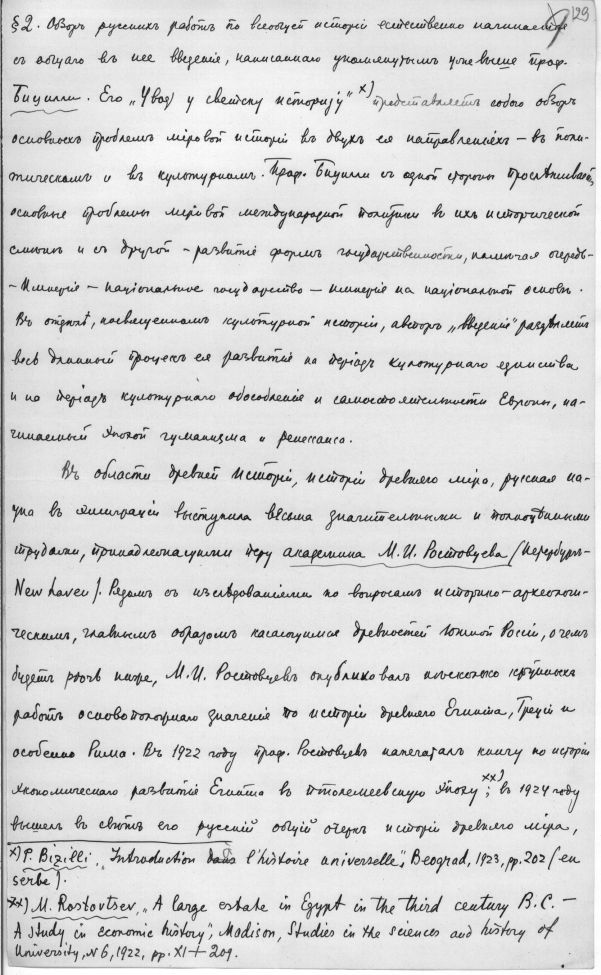 129
§2. Обзоръ русскихъ работъ по всеобщей исторіи естественно начинается
съ общаго въ нее введенія, написаннаго упомянутымъ уже выше проф.
Бицилли. Его „Увод у светску историју" x) представляетъ собою обзоръ
основныхъ проблемъ міровой исторіи въ двухъ ея направленіяхъ – въ поли-
тическомъ и въ культурномъ. Проф. Бицилли съ одной стороны прослѣживаетъ
основные проблемы міровой международной политики въ ихъ исторической
смѣнѣ и съ другой – развитіе формъ государственности, намѣчая очередь-
– Имперія – національное государство – имперія на національной основѣ.
Въ отдѣлѣ, посвященномъ культурной исторіи, авторъ „введенія" раздѣляетъ
весь длинный процессъ ея развитія на періодъ культурнаго единства
и на періодъ культурнаго обособленія и самостоятельности Европы, на-
чинаемый эпохой гуманизма и ренессанса.
Въ области древней исторіи, исторіи древняго міра, русская на-
ука въ эмиграціи выступила весьма значительными и полноцѣнными
трудами, принадлежащими перу академика М.И. Ростовцева (Петербургъ-
New Haven). Рядомъ съ изслѣдованіями по вопросамъ историко-археологи-
ческимъ, главнымъ образомъ касающимся древностей Южной Росіи, о чемъ
будетъ рѣчь ниже, М.И. Ростовцевъ опубликовалъ нѣсколько крупныхъ
работъ основоположнаго значенія по исторіи древняго Египта, Греціи и
особенно Рима. Въ 1922 году проф. Ростовцевъ напечаталъ книгу по исторіи
экономическаго развитія Египта въ птолемеевскую эпоху xx); въ 1924 году
вышелъ въ свѣтъ его русскій общій очеркъ исторіи древняго міра,
x) P. Bizilli, „Introduction dans l'histoire universelle", Beograd, 1923, pp. 202 (en
serbe).
xx) M. Rostovtsev, „A large estate in Egypt in the third century B.C. –
A study in economic history", Madison, Studies in the sciences and history of
University, N 6, 1922, pp. XI + 209.